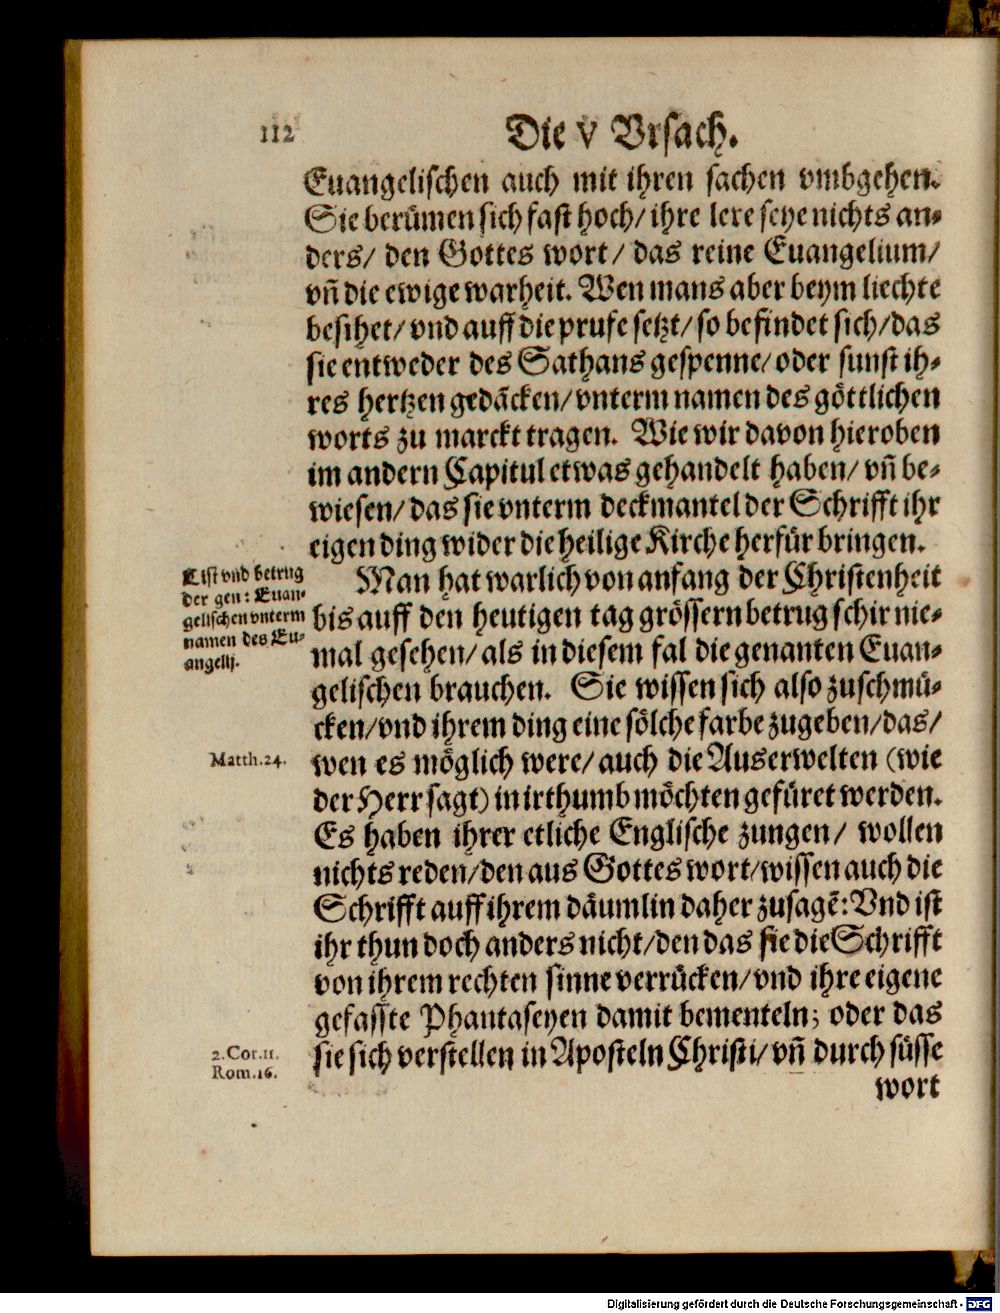 112
Die V Vrsach.
Euangelischen auch mit ihren sachen vmbgehen.
Sie berümen sich fast hoch/ ihre lere seye nichts an-
ders/ den Gottes wort/ das reine Euangelium/
vñ die ewige warheit. Wen mans aber beym liechte
besihet/ vnd auff die prufe setzt/ so befindet sich/ das
sie entweder des Sathans gespenne/ oder sunst ih-
res hertzen gedãcken/ vnterm namen des göttlichen
worts zu marckt tragen. Wie wir davon hieroben
im andern Capitul etwas gehandelt haben/ vñ be-
wiesen/ das sie vnterm deckmantel der Schrifft ihr
eigen ding wider die heilige Kirche herfür bringen.
List vnd betrug
der gen: Euan-
gelischen vnterm
namen des Eu-
angelij.
Man hat warlich von anfang der Christenheit
bis auff den heutigen tag grössern betrug schir nie-
mal gesehen/ als in diesem fal die genanten Euan-
gelischen brauchen. Sie wissen sich also zuschmü-
cken/ vnd ihrem ding eine sölche farbe zugeben/ das/
Matth.24.
wen es möglich were/ auch die Auserwelten (wie
der Herr sagt) in irthumb möchten gefüret werden.
Es haben ihrer etliche Englische zungen/ wollen
nichts reden/ den aus Gottes wort/ wissen auch die
Schrifft auff ihrem däumlin daher zusagẽ: Vnd ist
ihr thun doch anders nicht/ den das sie die Schrifft
von ihrem rechten sinne verrücken/ vnd ihre eigene
gefasste Phantaseyen damit bementeln; oder das
2.Cor.11.
Rom.16.
sie sich verstellen in Aposteln Christi/ vñ durch süsse
wort
Digitalisierung gefördert durch die Deutsche Forschungsgemeinschaft - DFG